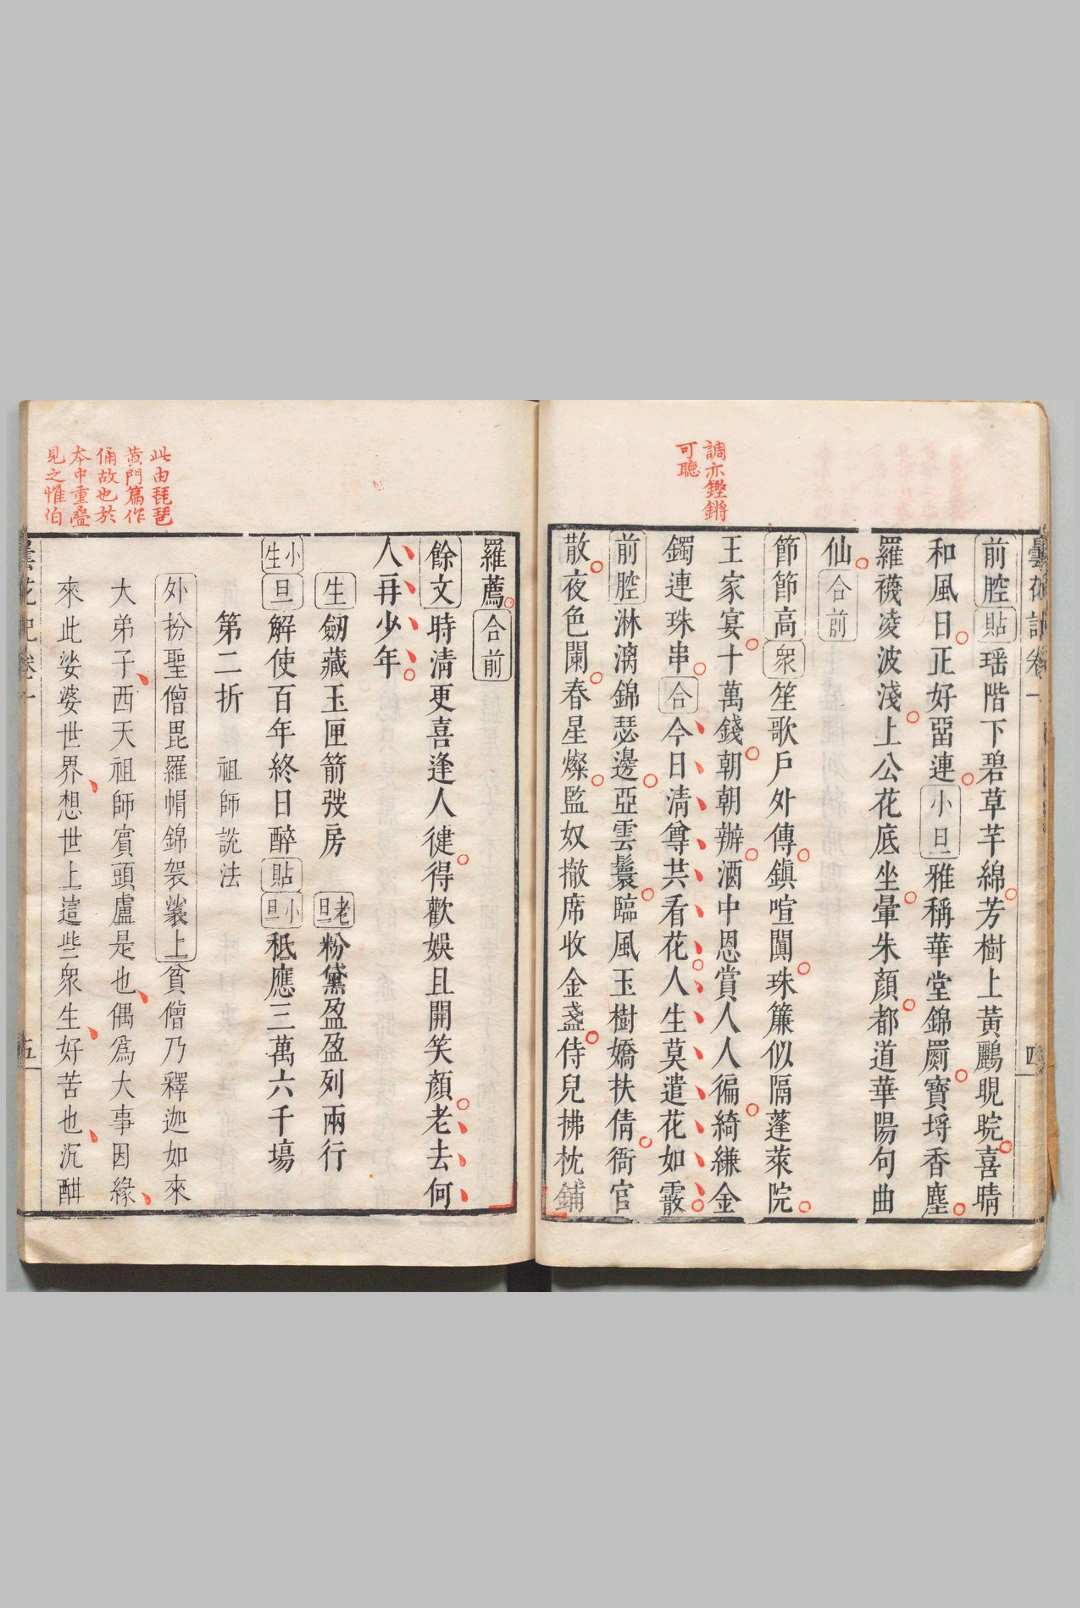 調亦鏗鏘
可聽
曇花記卷一 四
前腔貼瑶階下碧草芊綿芳樹上黃鸝睍睆喜晴
和風日正好留連小旦雅稱華堂錦罽寶埒香塵
羅襪凌波淺上公花底坐暈朱顏都道華陽句曲
仙合前
節節高衆笙歌戶外傳鎮喧闐珠簾似隔蓬萊院
王家宴十萬錢朝朝辦酒中恩賞人人徧綺縑金
鐲連珠串合今日清尊共看花人生莫遣花如霰
前腔淋漓錦瑟邊亞雲鬟臨風玉樹嬌扶倩衙官
散夜色闌春星燦監奴撤席收金盞侍兒拂枕鋪
此由琵琶
黃門篇作
俑故也於
本中重疊
見之惟伯
羅薦合前
餘文時清更喜逢人健得歡娛且開笑顏老去何
人再少年
生劒藏玉匣箭弢房 老旦粉黛盈盈列兩行
小生旦解使百年終日醉貼小旦秪應三萬六千塲
第二折 祖師說法
外扮聖僧毘羅帽錦袈裟上貧僧乃釋迦如來
大弟子西天祖師賓頭盧是也偶爲大事因緣
來此娑婆世界想世上這些衆生好苦也沉酣
曇花記卷一 五